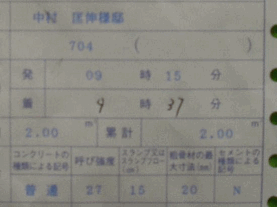 中村 匡伸様邸
704 ( )
発 09 時 15 分
着 9 時 37 分
2.00 m³ 累計 2.00 m³
コンクリートの種類による記号 呼び強度 スランプ又はスランプフロー(cm) 粗骨材の最大寸法(mm) セメントの種類による記号
普通 27 15 20 N